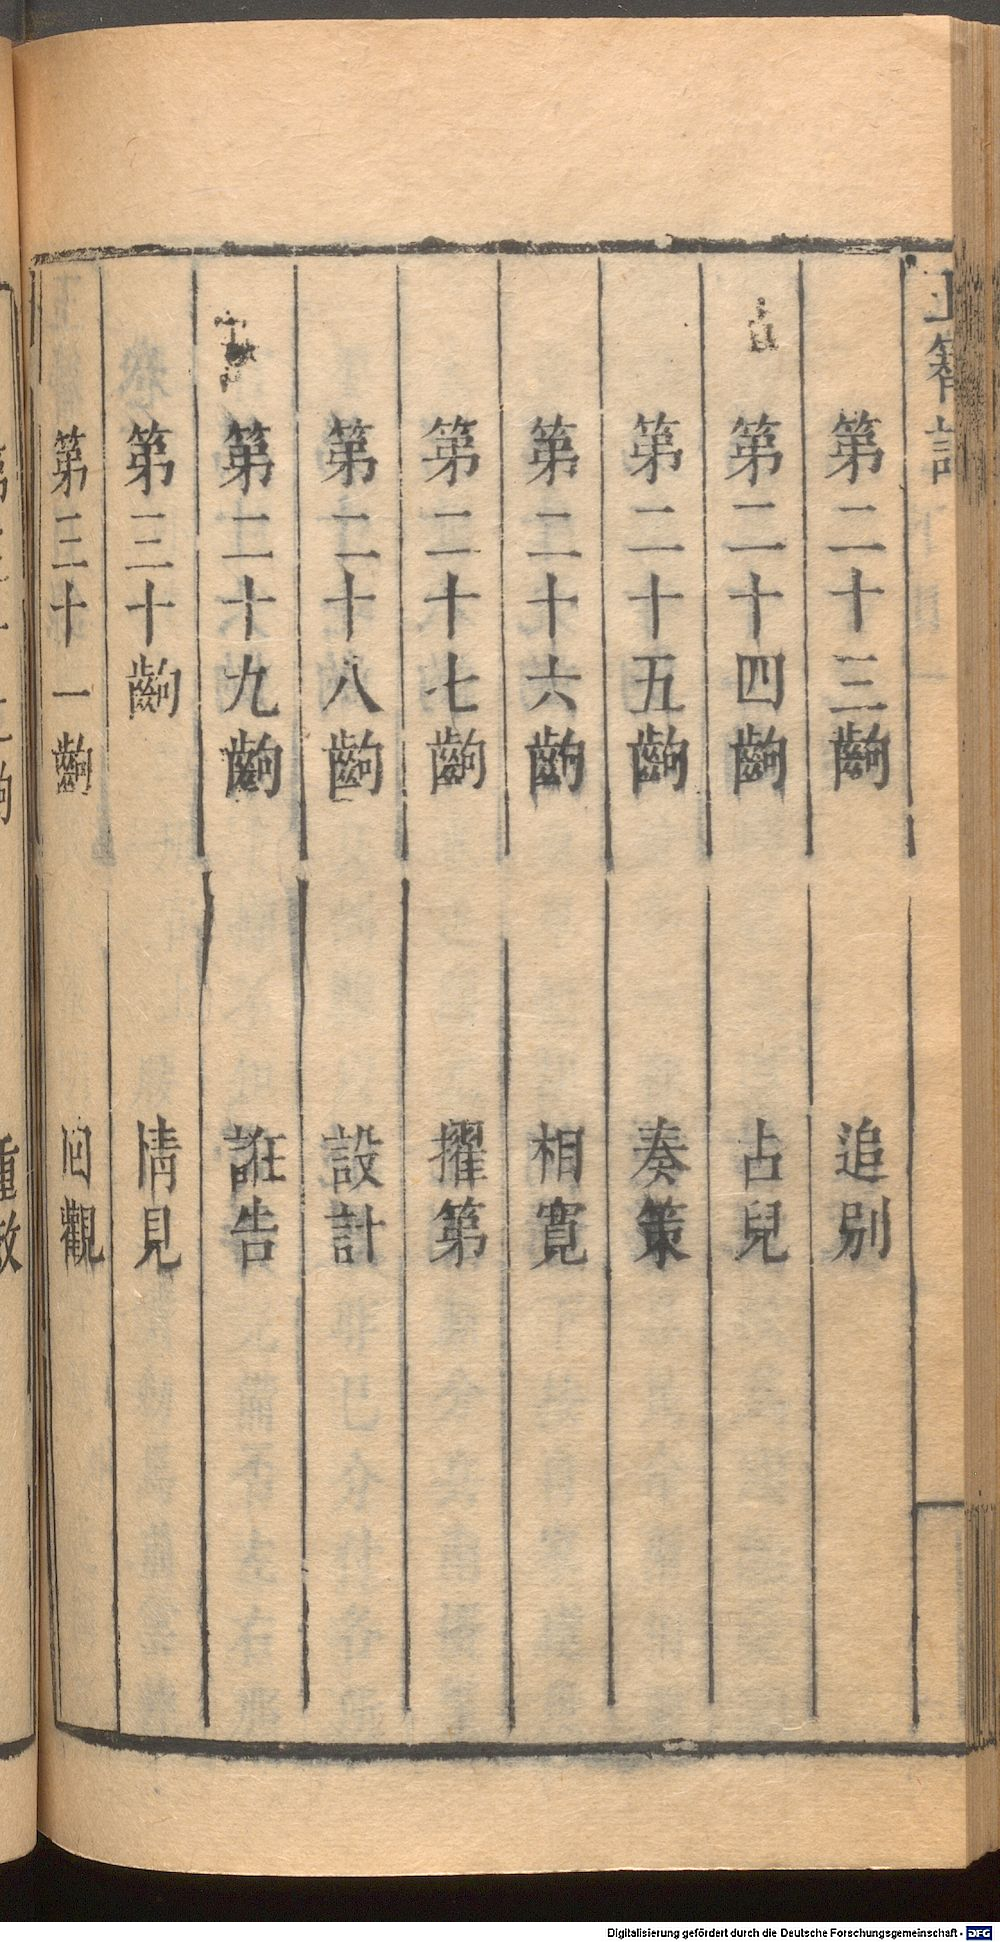 第二十三齣　追别
第二十四齣　占兒
第二十五齣　奏策
第二十六齣　相寬
第二十七齣　擢第
第二十八齣　設計
第二十九齣　誑告
第三十齣　情見
第三十一齣　回觀
Digitalisierung gefördert durch die Deutsche Forschungsgemeinschaft - DFG